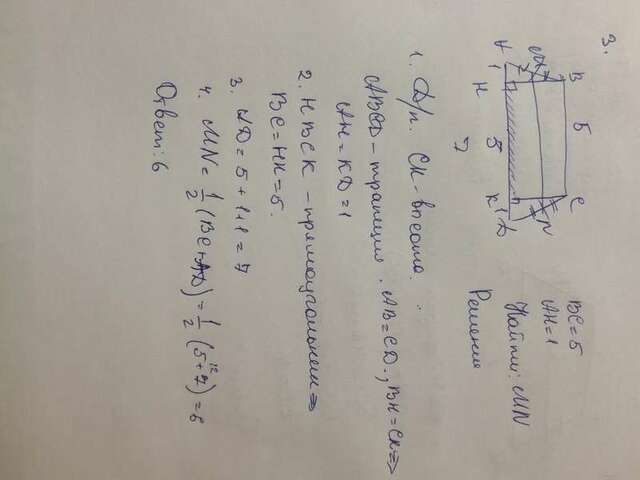 3.
A 1 H 5 K 1 D
7
M N
B 5 C
BC=5
AH=1
Найти: MN
Решение
1. Д/п. CK-высота.
ABCD-трапеция, AB=CD, BH=CK⇒
AH=KD=1
2. HBCK-прямоугольник⇒
BC=HK=5.
3. AD=5+1+1=7
4. MN=1/2(BC+AD)=1/2(5+7)=6
12
Ответ: 6